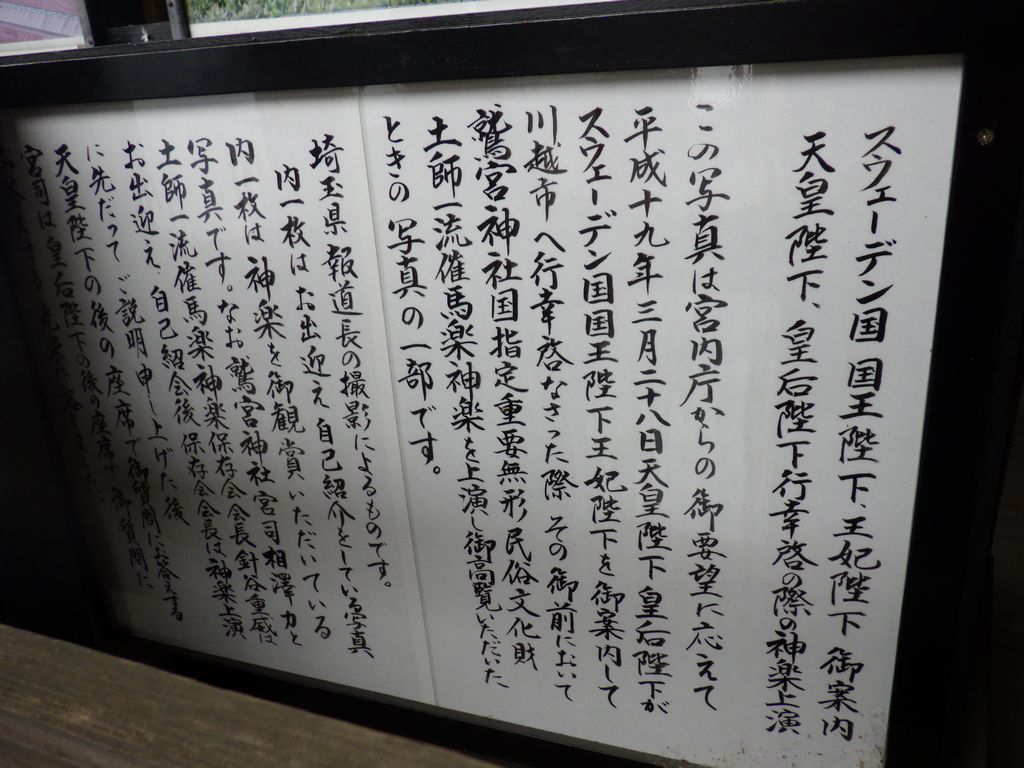 スウェーデン国国王陛下、王妃陛下御案内
天皇陛下、皇后陛下行幸啓の際の神楽上演
この写真は宮内庁からの御要望に応えて
平成十九年三月二十八日天皇陛下皇后陛下が
スウェーデン国国王陛下王妃陛下を御案内して
川越市へ行幸啓なさった際その御前において
鷲宮神社国指定重要無形民俗文化財
土師一流催馬楽神楽を上演し御高覧いただいた
ときの写真の一部です。
埼玉県報道長の撮影によるものです。
内一枚はお出迎え自己紹介をしている写真
内一枚は神楽を御観賞いただいている
写真です。なお鷲宮神社宮司相澤力と
土師一流催馬楽神楽保存会会長針谷重威は
お出迎え、自己紹介後保存会会長は神楽上演
に先だってご説明申し上げた後
天皇陛下の後の座席で御質問にお答えする
宮司は皇后陛下の後の座席で御質問に